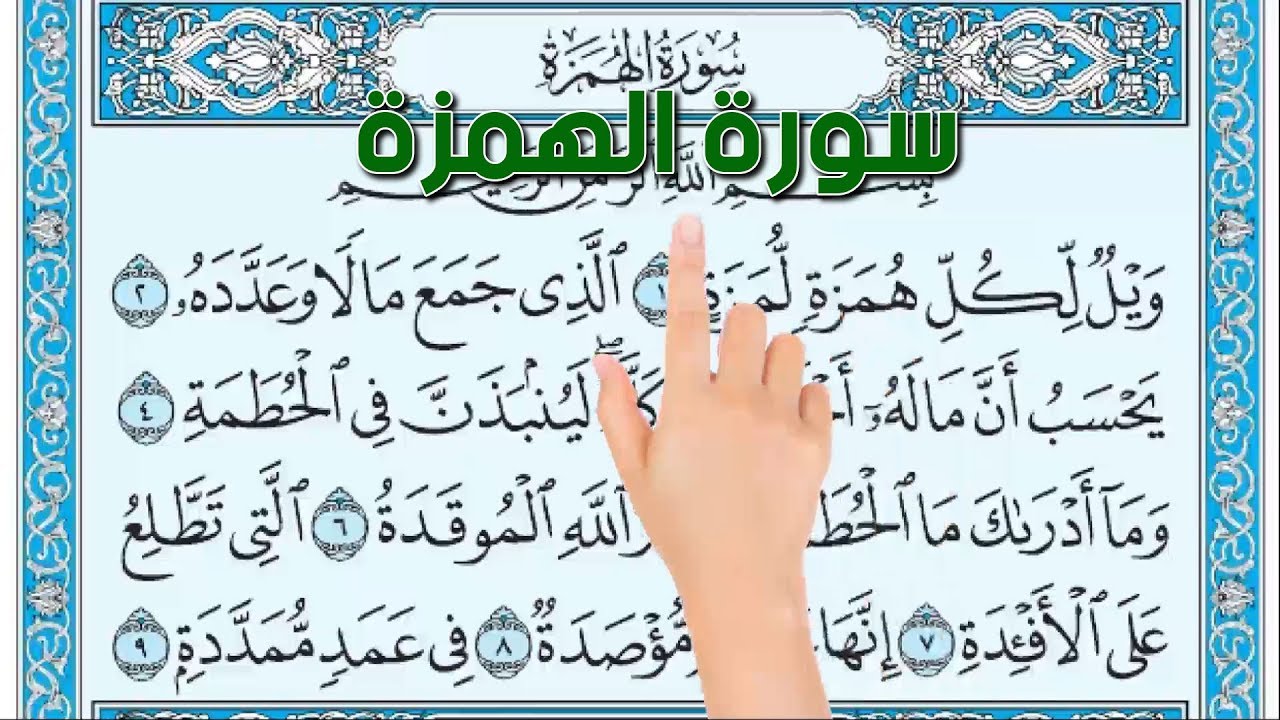 سُورَةُ الهُمَزَةِ
سورة الهمزة
بِسْمِ اللَّهِ
وَيْلٌ لِّكُلِّ هُمَزَةٍ لُّمَزَةٍ ١ ٱلَّذِى جَمَعَ مَالًا وَعَدَّدَهُۥ ٢
يَحْسَبُ أَنَّ مَالَهُۥٓ لَيُنۢبَذَنَّ فِى ٱلْحُطَمَةِ ٤
وَمَآ أَدْرَىٰكَ مَا ٱللَّهِ ٱلْمُوقَدَةُ ٦ ٱلَّتِى تَطَّلِعُ
عَلَى ٱلْأَفْـِٔدَةِ ٧ إِنَّهَا مُّؤْصَدَةٌ ٨ فِى عَمَدٍ مُّمَدَّدَةٍۭ ٩